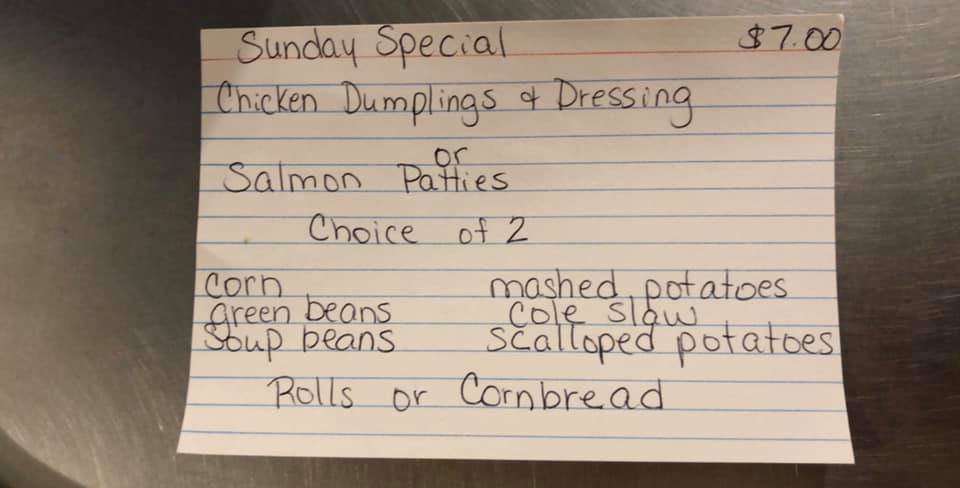 Sunday Special $7.00
Chicken Dumplings & Dressing
or
Salmon Patties
Choice of 2
corn mashed potatoes
green beans cole slaw
soup beans scalloped potatoes
Rolls or Cornbread